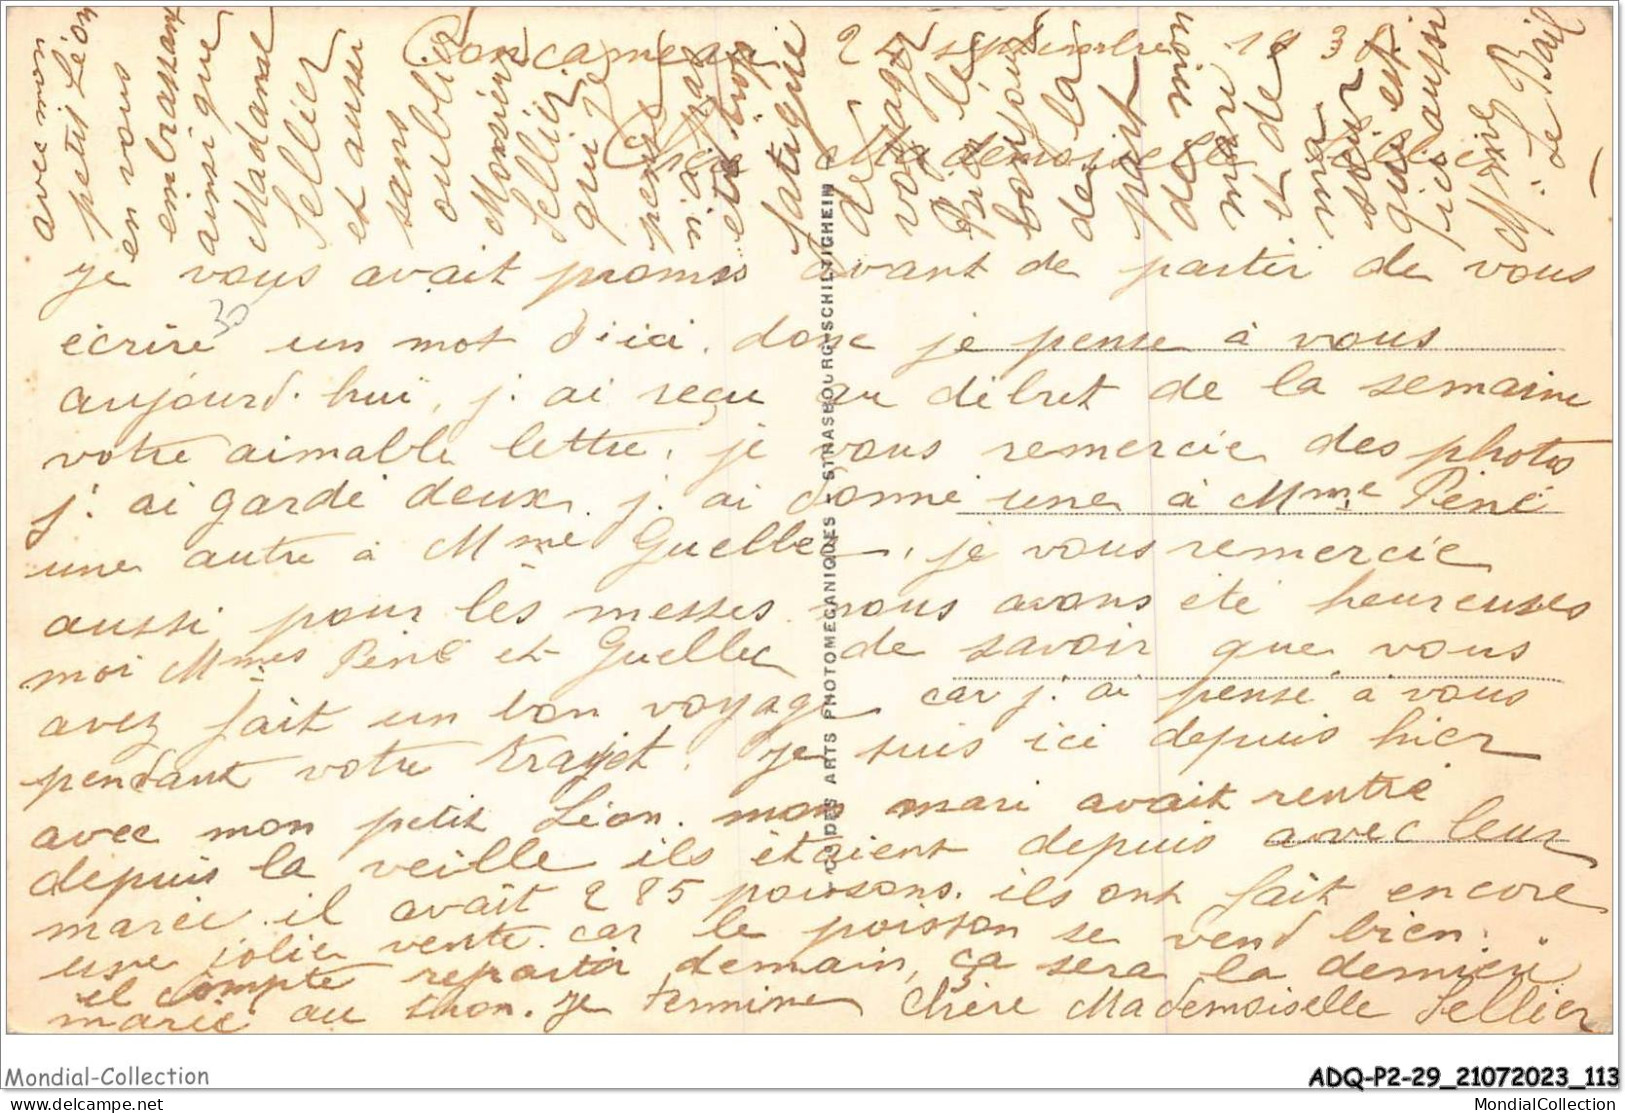 Concarneau 2 septembre 193
Chère Mademoiselle Sellier
je vous avait promis avant de partir de vous
écrire un mot d'ici. donc je pense à vous
aujourd'hui, j'ai reçu au début de la semaine
votre aimable lettre, je vous remercie des photos
j'ai gardé deux. j'ai donné une à Mme Péné
une autre à Mme Guellec, je vous remercie
aussi pour les messes nous avons été heureuses
moi Mmes Péné et Guellec de savoir que vous
avez fait un bon voyage car j'ai pensé à vous
pendant votre trajet. je suis ici depuis hier
avec mon petit Léon. mon mari avait rentré
depuis la veille ils étaient depuis avec leur
marée. il avait 285 poissons. ils ont fait encore
une jolie vente. car le poisson se vend bien.
il compte repartir demain, ça sera la dernière
marée au thon. je termine chère Mademoiselle Sellier
avec mon
petit Léon
en vous
embrassant
ainsi que
Madame
Sellier
et aussi
sans
oublier
Monsieur
Sellier
qui je
pense
n'a pas
été trop
fatigué
de
voyage
Bien le
bonjour
de la
part
de mon
mari
et de
ma
sœur
qui est
ici aussi
Mme
Le Bail
30
CIE DES ARTS PHOTOMECANIQUES - STRASBOURG-SCHILTIGHEIM
Mondial-Collection
ADQ-P2-29_21072023_113
mondial-collection.delcampe.net
MondialCollection